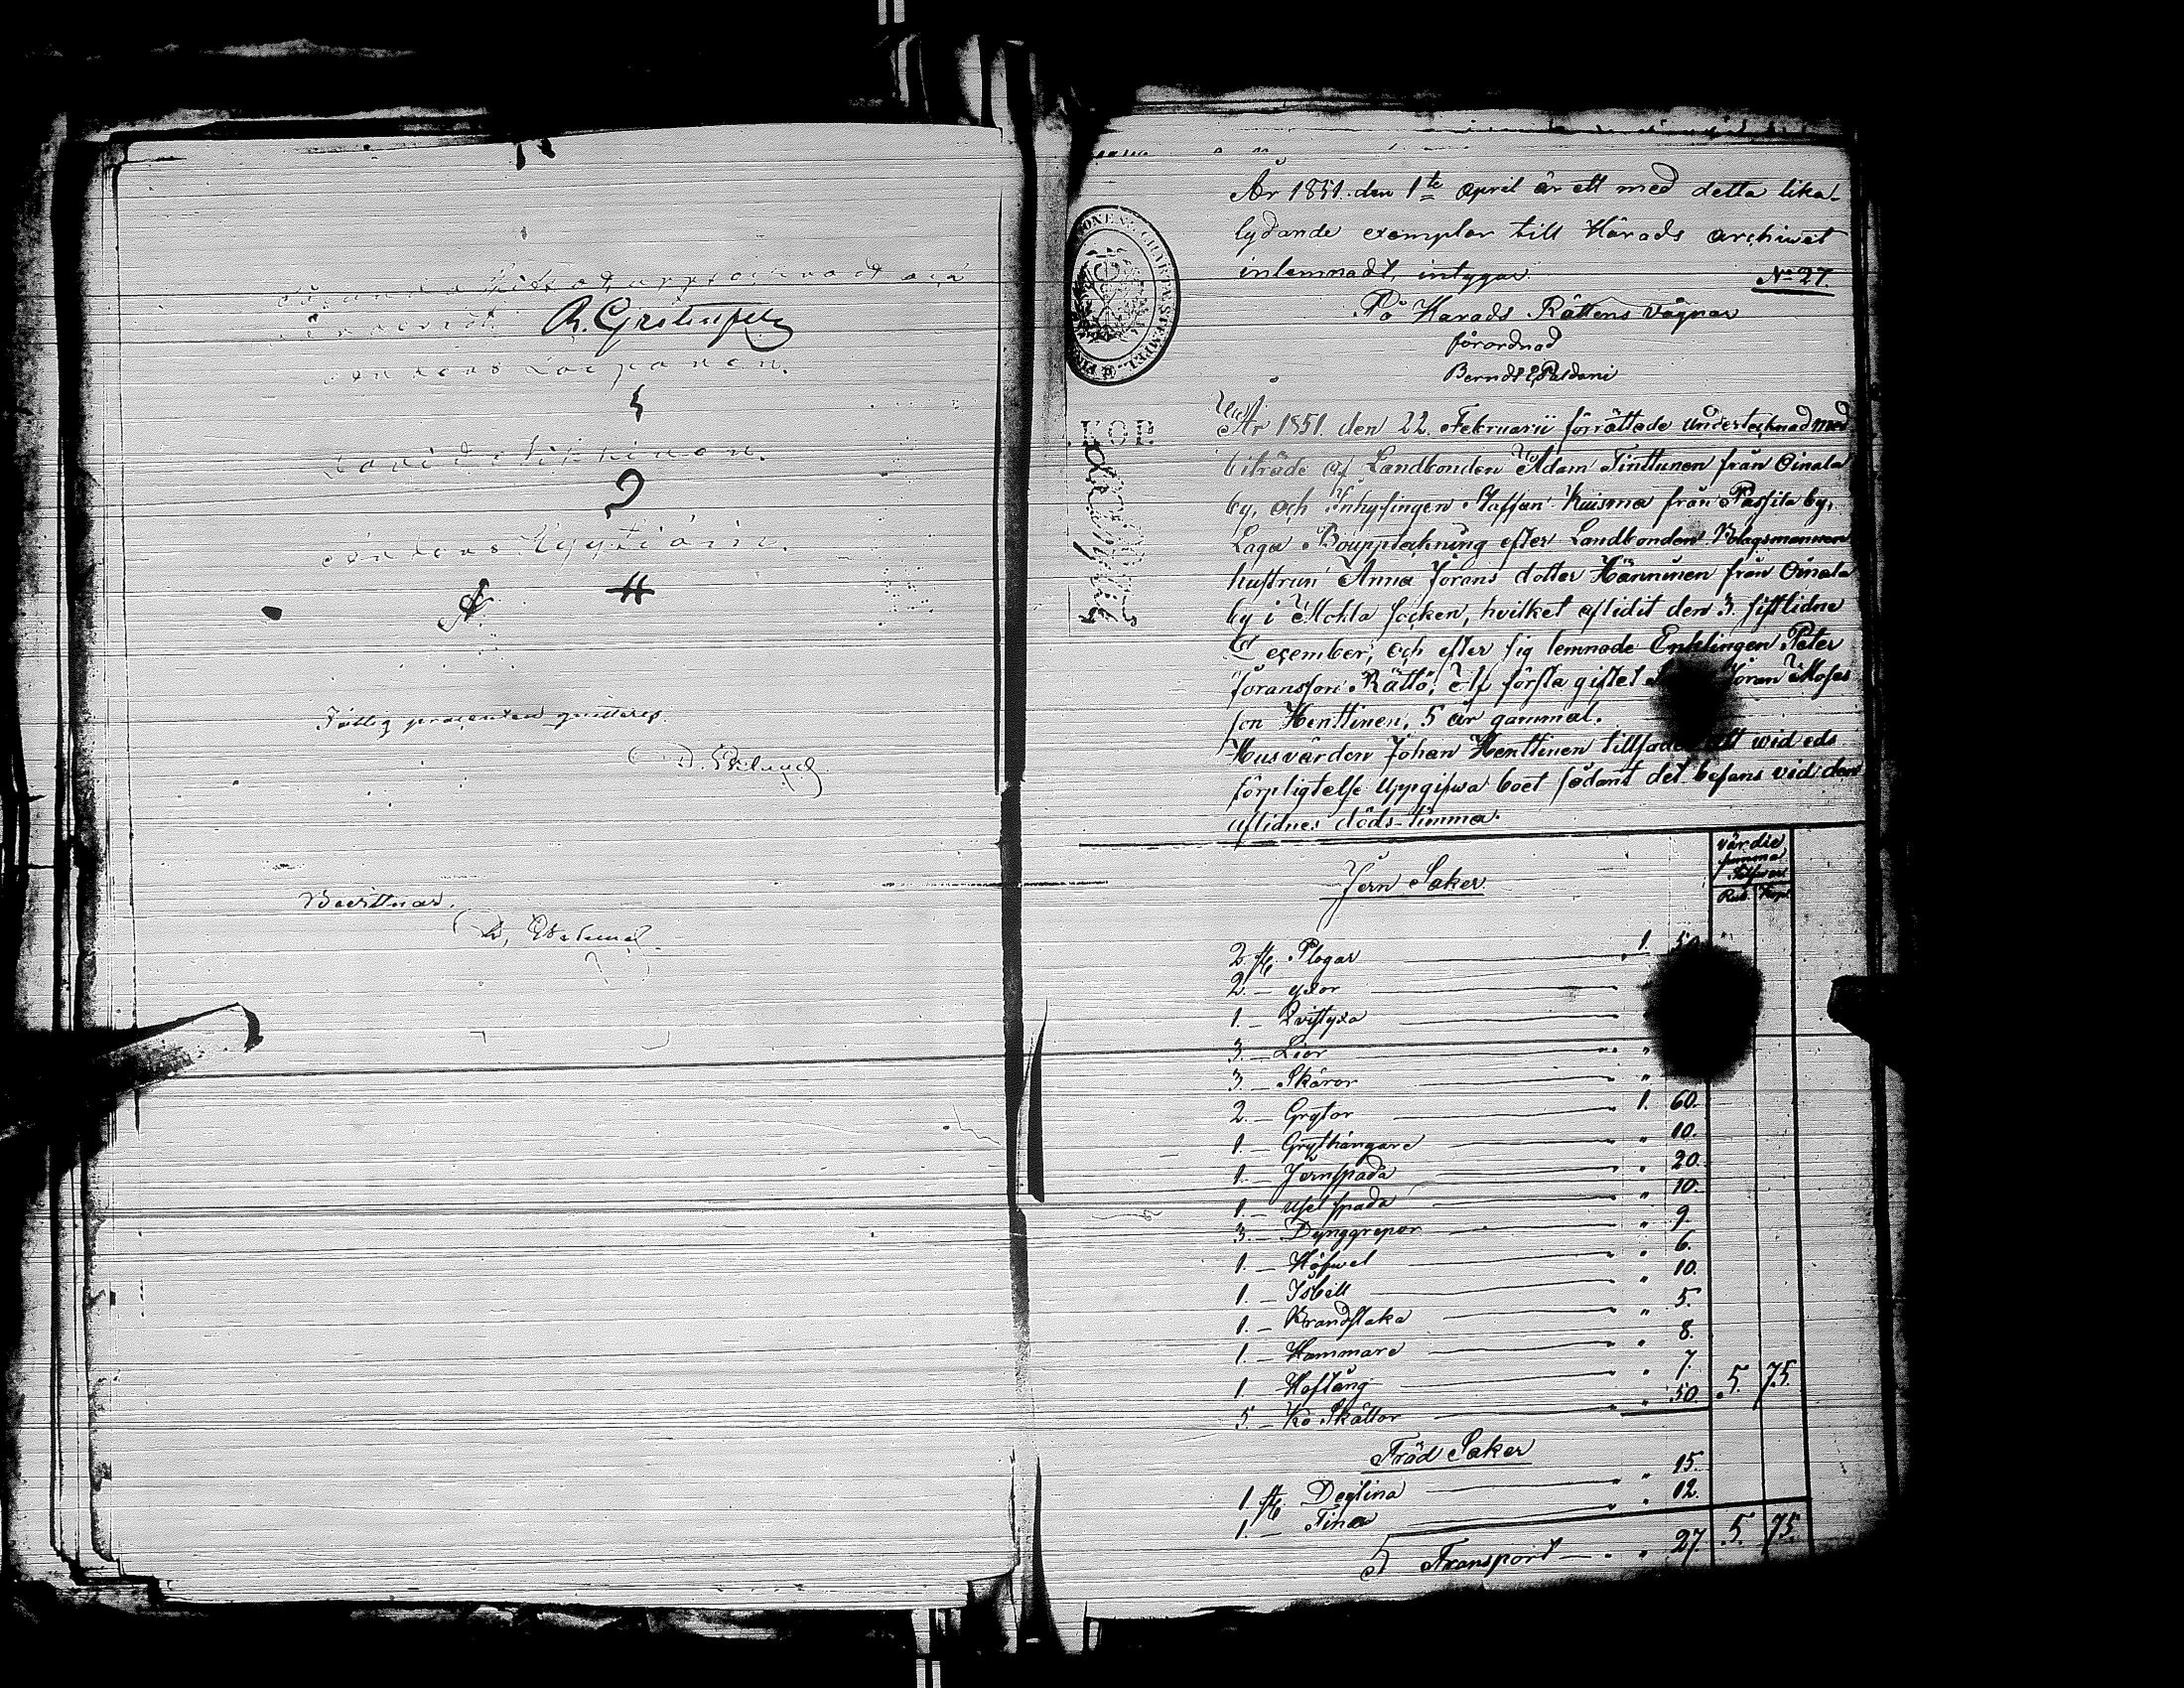 R. Grotenfelt
Andreas Loeponen.
Fattig procenten quitteras.
D. Eklund
Bevittnar.
D. Eklund.
År 1851. den 1te April är ett med detta lika-
lydande exemplar till Härads archivet
inlemnadt, intygar. No 27.
På Härads Rättens vägnar
förordnad
CHARTA
KOP.
År 1851. den 22. Februarii förrättade undertecknad med
biträde af Landbonden Adam Tinttunen från Oinala
by, och Inhysingen Staffan Kuisma från Passila by,
Laga Bouppteckning efter Landbonden Bolagsmannen
hustrun Anna Jörans dotter Hänninen från Oinala
by i Mohla socken, hvilket aflidit den 3. sistlidne
December; och efter sig lemnade Enklingen Peter
Joransson Rättö, Af första giftet Jöran Moses
son Henttinen, 5 år gammal.
Husvärden Johan Henttinen tillsades att wid eds
förpligtelse uppgifwa boet sådant det befans vid den
aflidnes döds-timma.
värdie
summa
Silfwer
Rub. Kop.
Jern Saker
2. st. Plogar 1. 50
2. — yxor
1. — Qvistyxa
3. — Liar "
3. — Skäror "
2. — Grytor 1. 60.
1. — Grythängare " 10.
1. — Jernspada " 20.
1. — Ugnspada " 10.
3. — Dynggrepar " 9.
1. — Höfwel " 6.
1. — Isbill " 10.
1. — Brandstaka " 5.
1. — Hammare " 8.
1. — Hoftång " 7.
5. — Ko Skällor " 50. 5. 75.
Träd Saker
1. st. Degtina " 15.
1. — Tina " 12.
Transport — " 27. 5. 75.